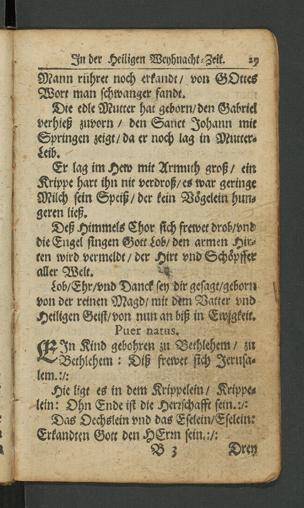 In der Heiligen Weyhnacht-Zeit. 29
Mann rühret noch erkandt / von GOttes
Wort man schwanger fandt.
Die edle Mutter hat geborn / den Gabriel
verhieß zuvorn / den Sanct Johann mit
Springen zeigt / da er noch lag in Mutter-
Leib.
Er lag im Hew mit Armuth groß / ein
Krippe hart ihn nit verdroß / es war geringe
Milch sein Speiß / der kein Vögelein hun-
geren ließ.
Deß Himmels Chor sich frewet drob / vnd
die Engel singen Gott Lob / den armen Hir-
ten wird vermeldt / der Hirt vnd Schöpffer
aller Welt.
Lob / Ehr / vnd Danck sey dir gesagt / geborn
von der reinen Magd / mit dem Vatter vnd
Heiligen Geist / von nun an biß in Ewigkeit.
Puer natus.
EIn Kind gebohren zu Bethlehem / zu
Bethlehem : Diß frewet sich Jerusa-
lem.:/:
Hie ligt es in dem Krippelein / Krippe-
lein: Ohn Ende ist die Herrschafft sein.:/:
Das Oechslein vnd das Eselein / Eselein:
Erkandten Gott den HErrn sein.:/:
B 3 Drey